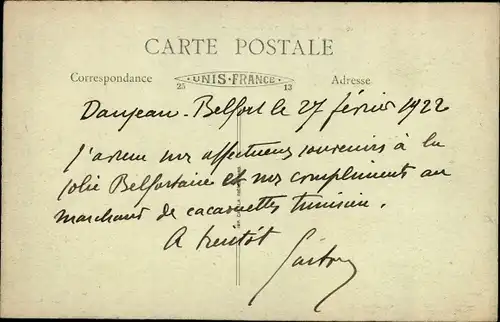 CARTE POSTALE
Correspondance
UNIS-FRANCE
25 13
Adresse
Danjean - Belfort le 27 février 1922
J'adresse mes affectueux souvenirs à la
jolie Belfortaine et mes compliments au
marchand de cacaouettes tunisien.
A bientôt